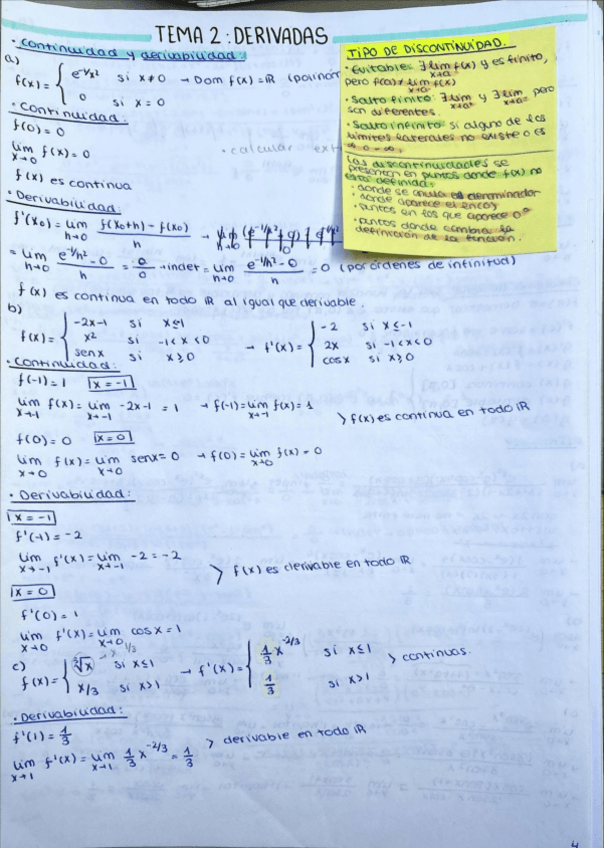 TEMA 2: DERIVADAS
· Continuidad y derivabilidad:
a)
f(x) = { e^-1/x² si x ≠ 0 → Dom f(x) = ℝ
0 si x = 0
· Continuidad:
f(0) = 0
lim x→0 f(x) = 0
f(x) es continua
· calcular
TIPO DE DISCONTINUIDAD.
· Evitable: ∃ lim x→a f(x) y es finito,
pero f(a) ≠ lim x→a f(x)
· Salto finito: ∃ lim x→a⁺ y ∃ lim x→a⁻ pero
son diferentes.
· Salto infinito: si alguno de los
límites laterales no existe o es
∞ o -∞.
Las discontinuidades se
presentan en puntos donde f(x) no
está definida:
· donde se anula el denominador
· donde aparece el ln(0)
· puntos en los que aparece 0⁰
· puntos donde cambia la
definición de la función.
· Derivabilidad:
f'(x₀) = lim h→0 f(x₀+h) - f(x₀) / h →
= lim h→0 e^-1/h² - 0 / h = 0/0 → indet = lim h→0 e^-1/h² - 0 / h = 0 (por órdenes de infinitud)
f(x) es continua en todo ℝ al igual que derivable.
b)
f(x) = { -2x-1 si x ≤ 1
x² si -1 < x < 0
sen x si x ≥ 0
→ f'(x) = { -2 si x ≤ -1
2x si -1 < x < 0
cos x si x ≥ 0
· Continuidad:
f(-1) = 1 x = -1
lim x→-1 f(x) = lim x→-1 -2x-1 = 1 → f(-1) = lim x→-1 f(x) = 1
> f(x) es continua en todo ℝ
f(0) = 0 x = 0
lim x→0 f(x) = lim x→0 sen x = 0 → f(0) = lim x→0 f(x) = 0
· Derivabilidad:
x = -1
f'(-1) = -2
lim x→-1 f'(x) = lim x→-1 -2 = -2
> f(x) es derivable en todo ℝ
x = 0
f'(0) = 1
lim x→0 f'(x) = lim x→0 cos x = 1
c)
f(x) = { ∛x → x^1/3 si x ≤ 1
x/3 si x > 1
→ f'(x) = { 1/3 x^-2/3 si x ≤ 1
1/3 si x > 1
> continuas.
· Derivabilidad:
f'(1) = 1/3
lim x→1 f'(x) = lim x→1 1/3 x^-2/3 = 1/3
> derivable en todo ℝ
4